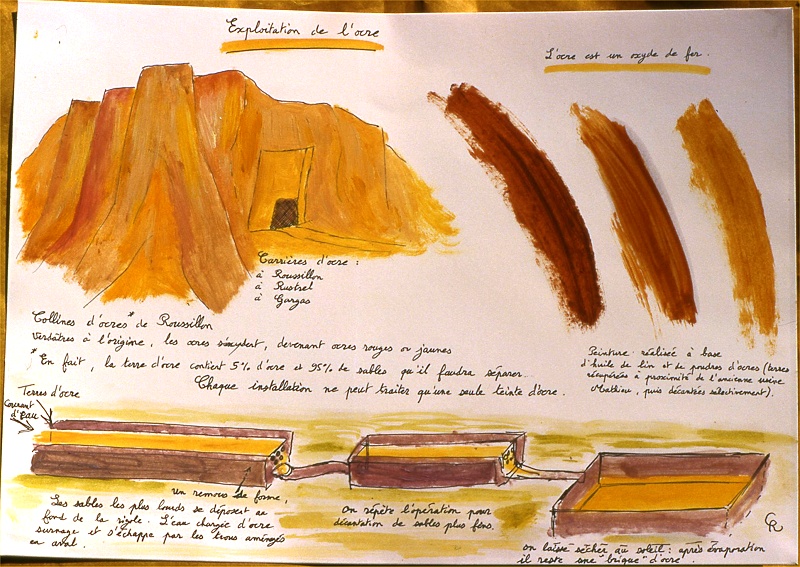 Exploitation de l'ocre
L'ocre est un oxyde de fer.
Carrières d'ocre :
à Roussillon
à Rustrel
à Gargas
Collines d'ocres* de Roussillon
Verdâtres à l'origine, les ocres s'oxydent, devenant ocres rouges ou jaunes
*En fait, la terre d'ocre contient 5% d'ocre et 95% de sables qu'il faudra séparer.
Chaque installation ne peut traiter qu'une seule teinte d'ocre.
Peinture réalisée à base
d'huile de lin et de poudres d'ocres (terres
récupérées à proximité de l'ancienne usine
Mathieu, puis décantées sélectivement).
Terres d'ocre
Courant
d'eau
un remous se forme,
Les sables les plus lourds se déposent au
fond de la rigole. L'eau chargée d'ocre
surnage et s'échappe par les trous aménagés
en aval.
on répète l'opération pour
décantation de sables plus fins.
on laisse sécher au soleil : après évaporation
il reste une "brique" d'ocre.
CR